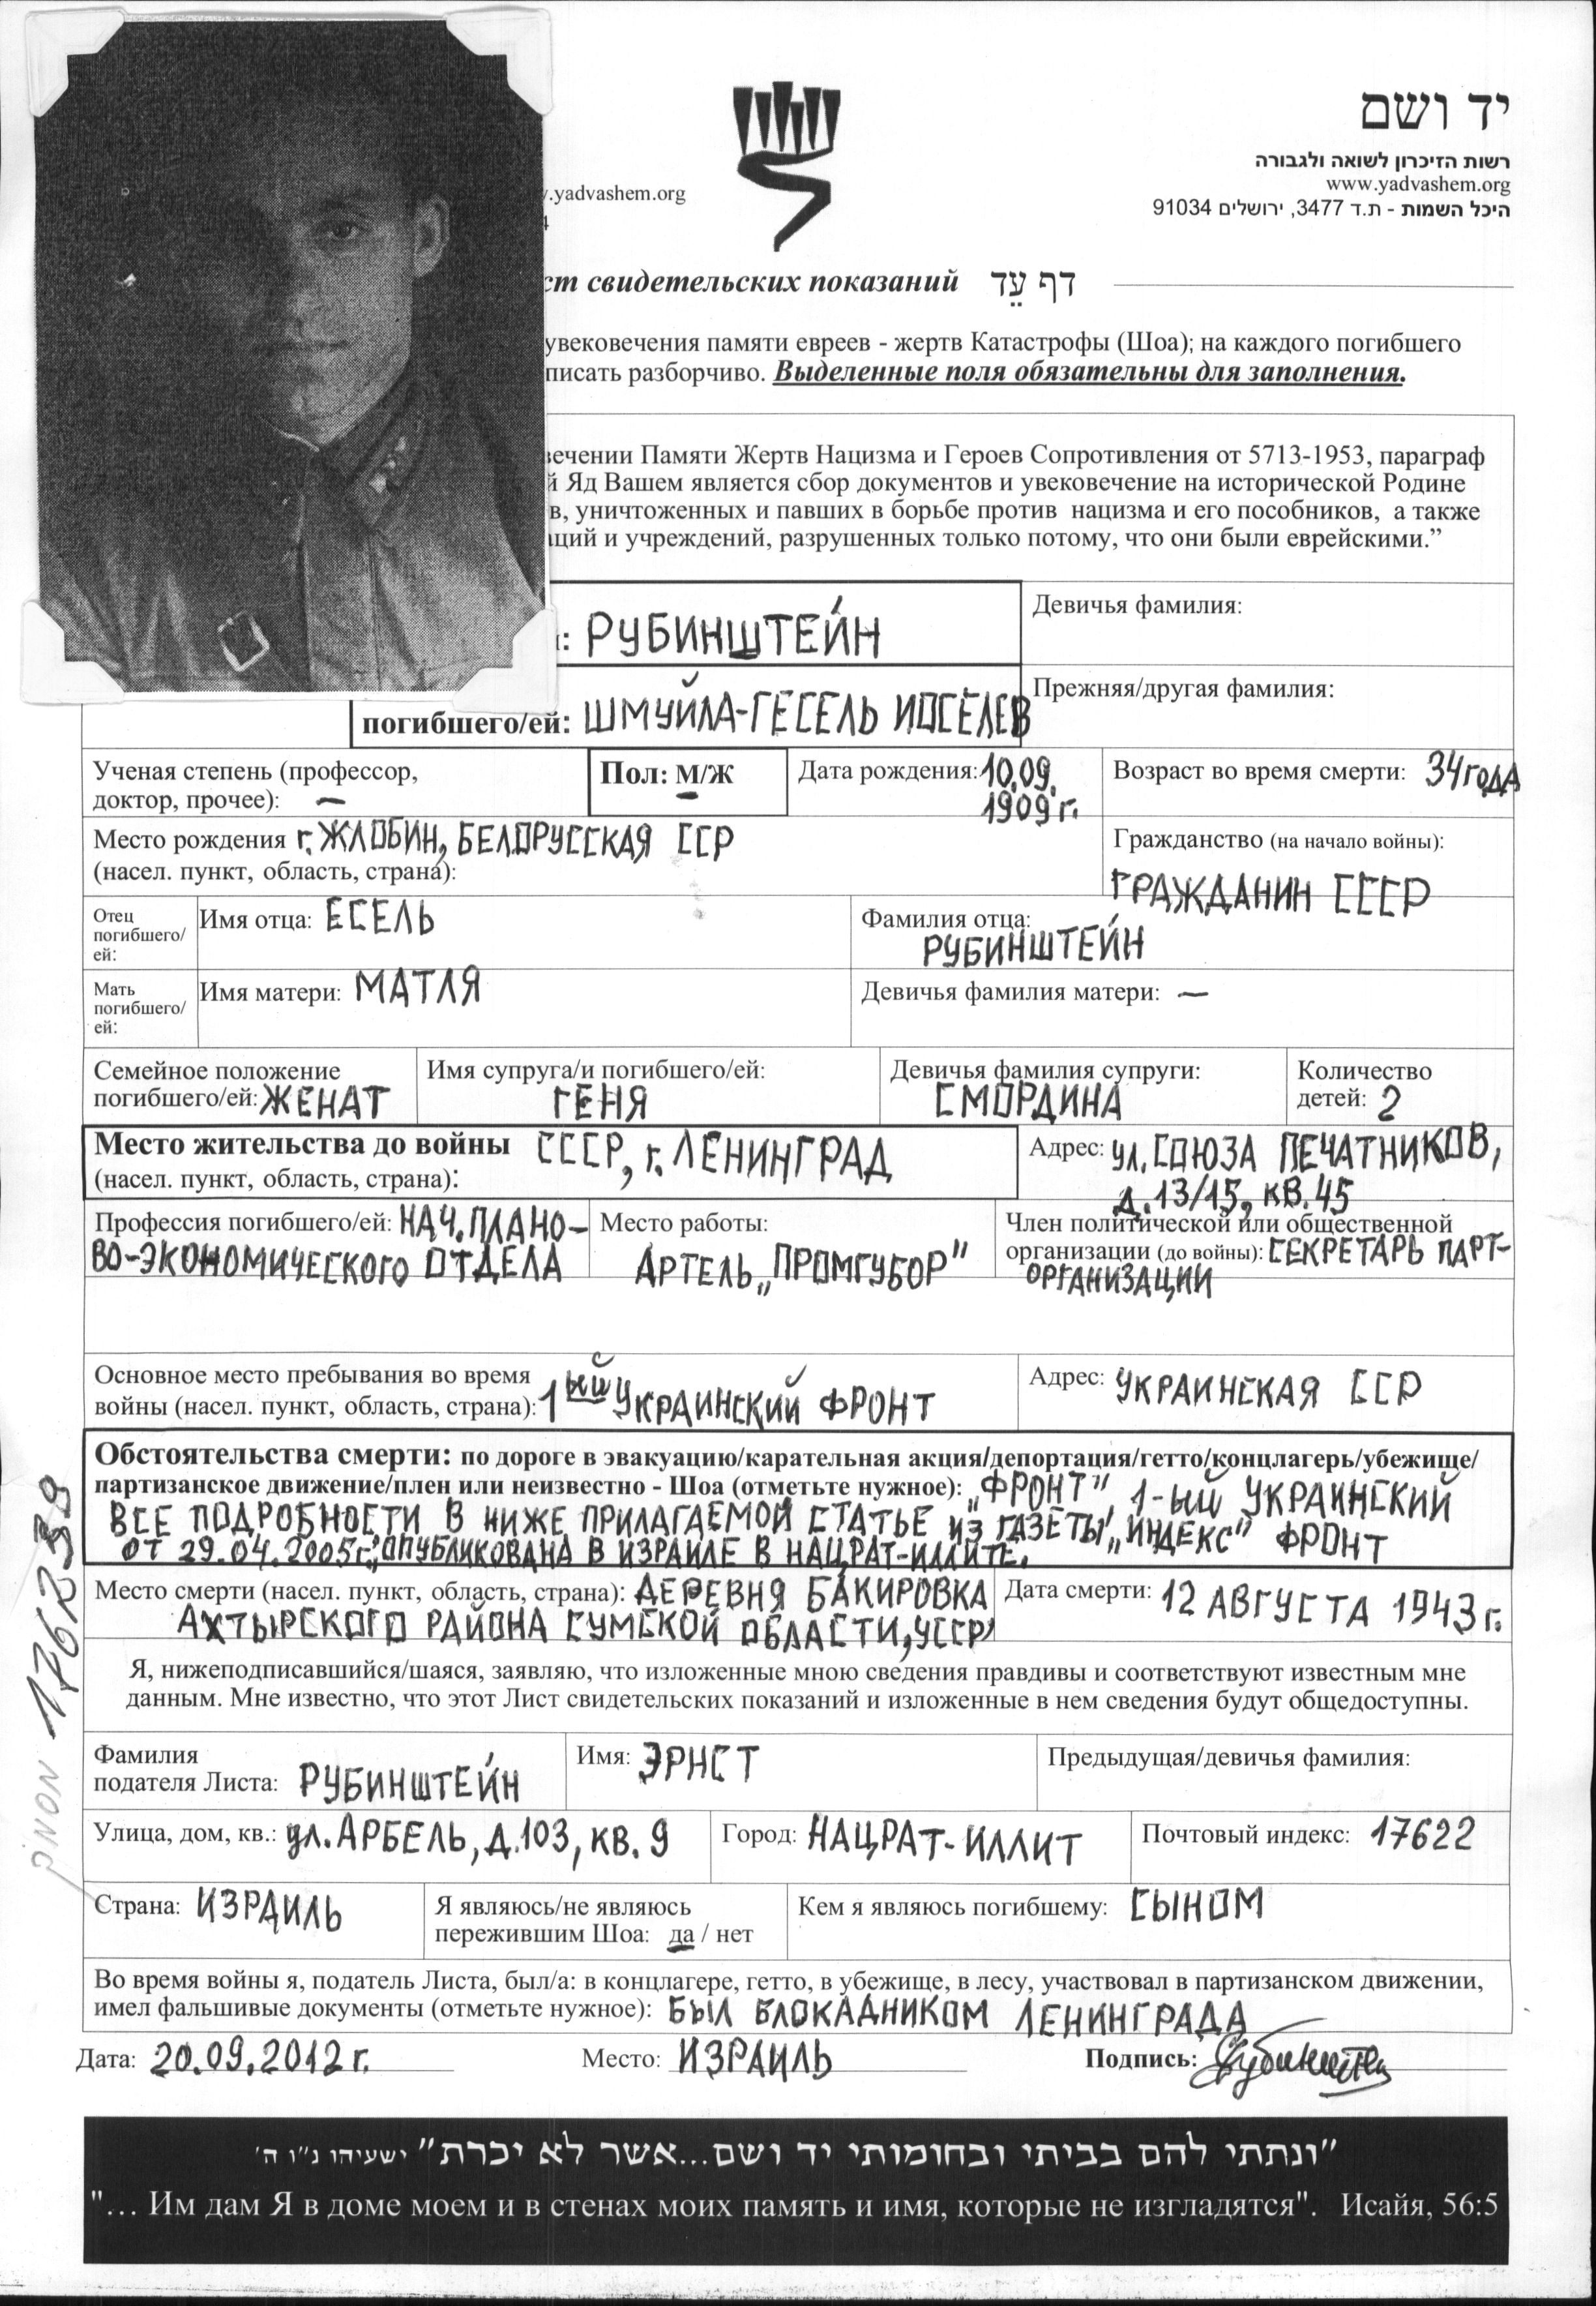 יד ושם
רשות הזיכרון לשואה ולגבורה
www.yadvashem.org
היכל השמות - ת.ד 3477, ירושלים 91034
.yadvashem.org
4
ст свидетельских показаний דף עֵד
увековечения памяти евреев - жертв Катастрофы (Шоа); на каждого погибшего
писать разборчиво. Выделенные поля обязательны для заполнения.
вечении Памяти Жертв Нацизма и Героев Сопротивления от 5713-1953, параграф
й Яд Вашем является сбор документов и увековечение на исторической Родине
в, уничтоженных и павших в борьбе против нацизма и его пособников, а также
аций и учреждений, разрушенных только потому, что они были еврейскими.”
: РУБИНШТЕЙН
Девичья фамилия:
погибшего/ей: ШМУЙЛА-ГЕСЕЛЬ ИОСЕЛЕВ
Прежняя/другая фамилия:
Ученая степень (профессор,
доктор, прочее): —
Пол: М/Ж
Дата рождения: 10.09.
1909 г.
Возраст во время смерти: 34 года
Место рождения г. ЖЛОБИН, БЕЛОРУССКАЯ ССР
(насел. пункт, область, страна):
Гражданство (на начало войны):
ГРАЖДАНИН СССР
Отец
погибшего/
ей:
Имя отца: ЕСЕЛЬ
Фамилия отца:
РУБИНШТЕЙН
Мать
погибшего/
ей:
Имя матери: МАТЛЯ
Девичья фамилия матери: —
Семейное положение
погибшего/ей: ЖЕНАТ
Имя супруга/и погибшего/ей:
ГЕНЯ
Девичья фамилия супруги:
СМОРДИНА
Количество
детей: 2
Место жительства до войны СССР, г. ЛЕНИНГРАД
(насел. пункт, область, страна):
Адрес: ул. СОЮЗА ПЕЧАТНИКОВ,
д. 13/15, кв. 45
Профессия погибшего/ей: НАЧ. ПЛАНО-
ВО-ЭКОНОМИЧЕСКОГО ОТДЕЛА
Место работы:
АРТЕЛЬ „ПРОМГУБОР”
Член политической или общественной
организации (до войны): СЕКРЕТАРЬ ПАРТ-
ОРГАНИЗАЦИИ
Основное место пребывания во время
войны (насел. пункт, область, страна): 1ый УКРАИНСКИЙ ФРОНТ
Адрес: УКРАИНСКАЯ ССР
Обстоятельства смерти: по дороге в эвакуацию/карательная акция/депортация/гетто/концлагерь/убежище/
партизанское движение/плен или неизвестно - Шоа (отметьте нужное): „ФРОНТ”, 1-ый УКРАИНСКИЙ
ВСЕ ПОДРОБНОСТИ В НИЖЕ ПРИЛАГАЕМОЙ СТАТЬЕ ИЗ ГАЗЕТЫ „ИНДЕКС” ФРОНТ
ОТ 29.04.2005г., ОПУБЛИКОВАНА В ИЗРАИЛЕ В НАЦРАТ-ИЛЛИТЕ.
Место смерти (насел. пункт, область, страна): ДЕРЕВНЯ БАКИРОВКА
АХТЫРСКОГО РАЙОНА СУМСКОЙ ОБЛАСТИ, УССР
Дата смерти: 12 АВГУСТА 1943 г.
Я, нижеподписавшийся/шаяся, заявляю, что изложенные мною сведения правдивы и соответствуют известным мне
данным. Мне известно, что этот Лист свидетельских показаний и изложенные в нем сведения будут общедоступны.
Фамилия
подателя Листа: РУБИНШТЕЙН
Имя: ЭРНСТ
Предыдущая/девичья фамилия:
Улица, дом, кв.: ул. АРБЕЛЬ, д. 103, кв. 9
Город: НАЦРАТ-ИЛЛИТ
Почтовый индекс: 17622
Страна: ИЗРАИЛЬ
Я являюсь/не являюсь
пережившим Шоа: да / нет
Кем я являюсь погибшему: СЫНОМ
Во время войны я, податель Листа, был/а: в концлагере, гетто, в убежище, в лесу, участвовал в партизанском движении,
имел фальшивые документы (отметьте нужное): БЫЛ БЛОКАДНИКОМ ЛЕНИНГРАДА
Дата: 20.09.2012 г.
Место: ИЗРАИЛЬ
Подпись:
"ונתתי להם בביתי ובחומותי יד ושם...אשר לא יכרת" ישעיהו נ"ו ה'
"... Им дам Я в доме моем и в стенах моих память и имя, которые не изгладятся". Исайя, 56:5